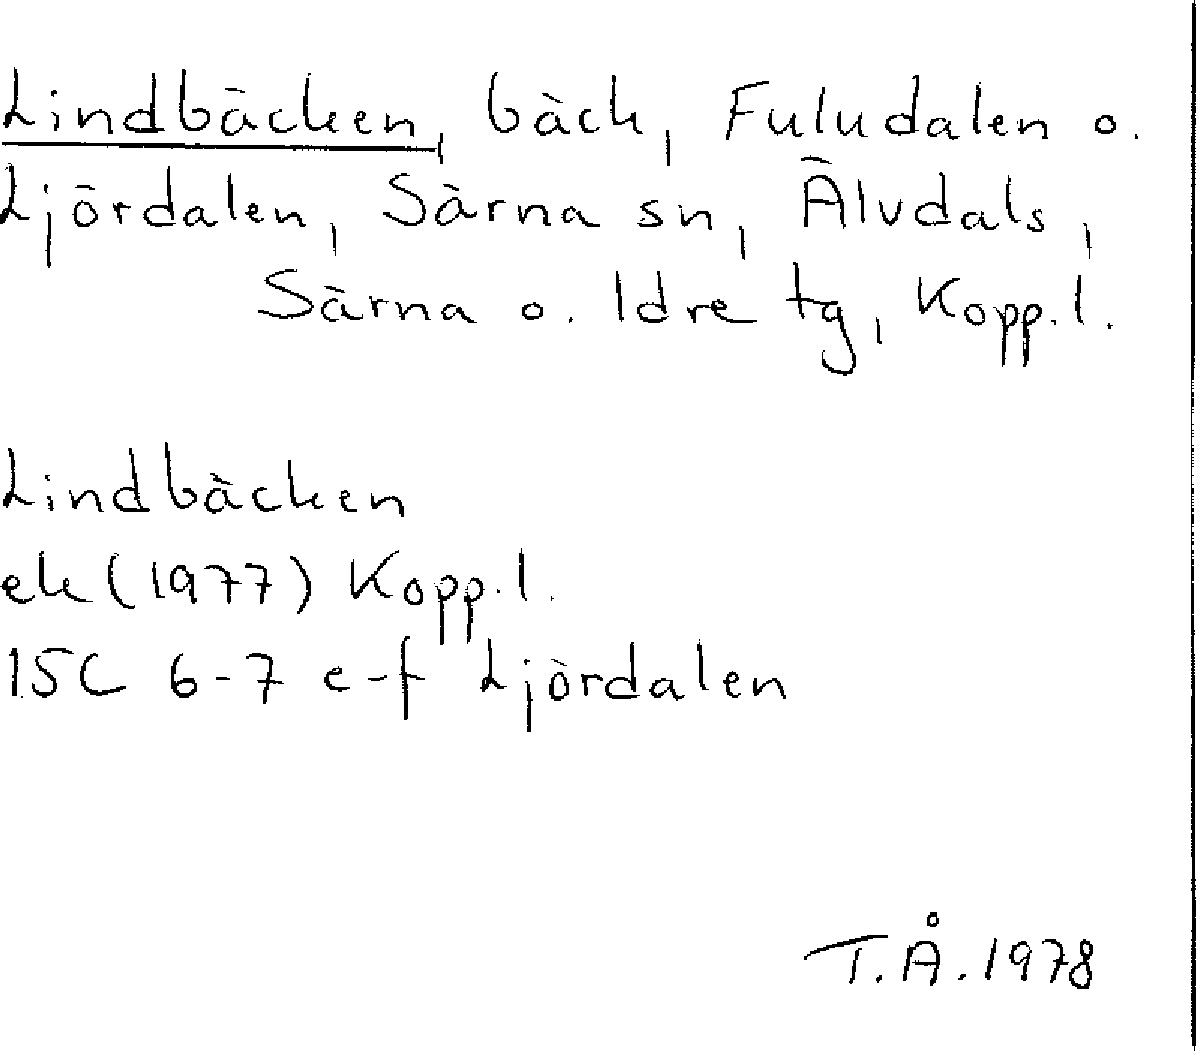 Lindbäcken, bäck, Fuludalen o.
Ljördalen, Särna sn, Älvdals,
Särna o. Idre tg, Kopp.l.
Lindbäcken
ek (1977) Kopp.l.
15C 6-7 e-f Ljördalen
T.Å. 1978